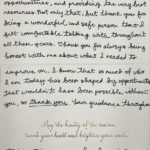 opportunities, and providing the very best
resources. Not only that, but thank you for
being a wonderful and safe person that I
felt comfortable talking with throughout
all these years. Thank you for always being
honest with me about what I needed to
improve on. I know that so much of who
I am today has been shaped by opportunities
that wouldn't have been possible without
you, so thank you. Your guidance throughout
May the beauty of the season
touch your heart and brighten your soul.